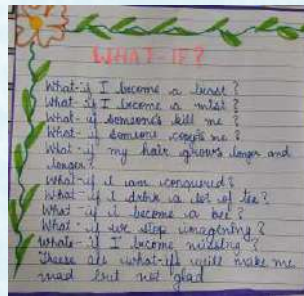 WHAT-IF?
What-if I become a beast?
What-if I become a mist?
What-if someone's kill me?
What-if someone copys me?
What-if my hair grows longer and
longer?
What-if I am conquered?
What-if I drink a lot of tea?
What-if I become a bee?
What-if we stop imagening?
Whate-if I become
These all what-ifs will make me
mad but not glad